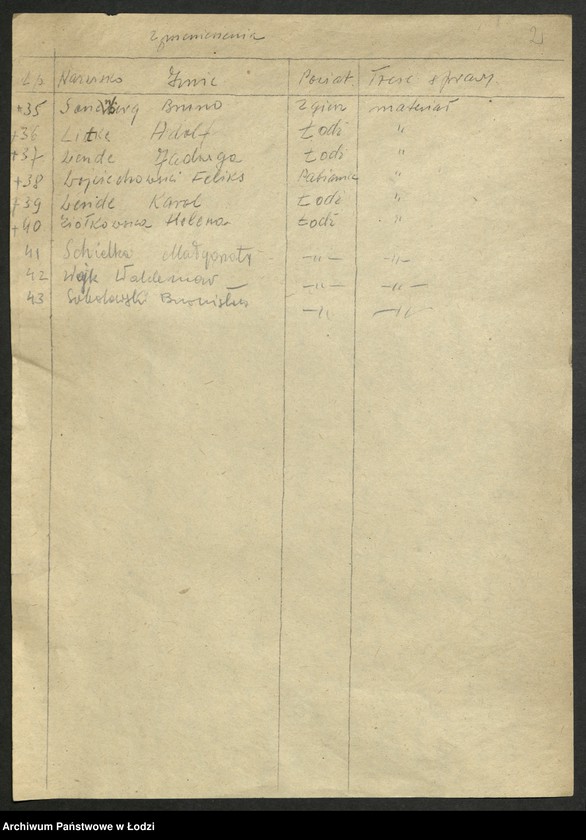 2
L/p Nazwisko Imie Powiat Treść sprawy.
+35 Bruno Zgierz materiał
+36 Litke Adolf Łódź "
+37 Wende Jadwiga Łodź "
+38 Wojciechowski Feliks Pabianice "
+39 Wende Karol Łodź "
+40 Ziołkowska Helena Łodź "
41 Małgorzata -"- -"-
42 Wójk Waldemar -"- -"-
43 Sobolewski Bronisław -"- -"-
Archiwum Państwowe w Łodzi